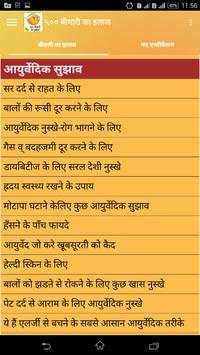 11:56
५०० बीमारी का इलाज
बीमारी का इलाज
नए एप्लीकेशन
आयुर्वेदिक सुझाव
सर दर्द से राहत के लिए
बालों की रूसी दूर करने के लिए
जानलेवा नुस्खे-रोग भागने के लिए
गैस व् बदहजमी दूर करने के लिए
डायबिटीज के लिए सरल देशी नुस्खे
ह्रदय स्वस्थ्य रखने के उपाय
मोटापा घटाने केलिए कुछ आयुर्वेदिक सुझाव
हँसने के पाँच फायदे
आयुर्वेद जो करे खूबसूरती को कैद
हेल्दी स्किन के लिए
बालों को झडते से रोकने के लिए कुछ खास नुस्खे
पेट दर्द से आराम के लिए आयुर्वेदिक नुस्खे
ये हैं एलर्जी से बचने के सबसे आसान आयुर्वेदिक तरीके